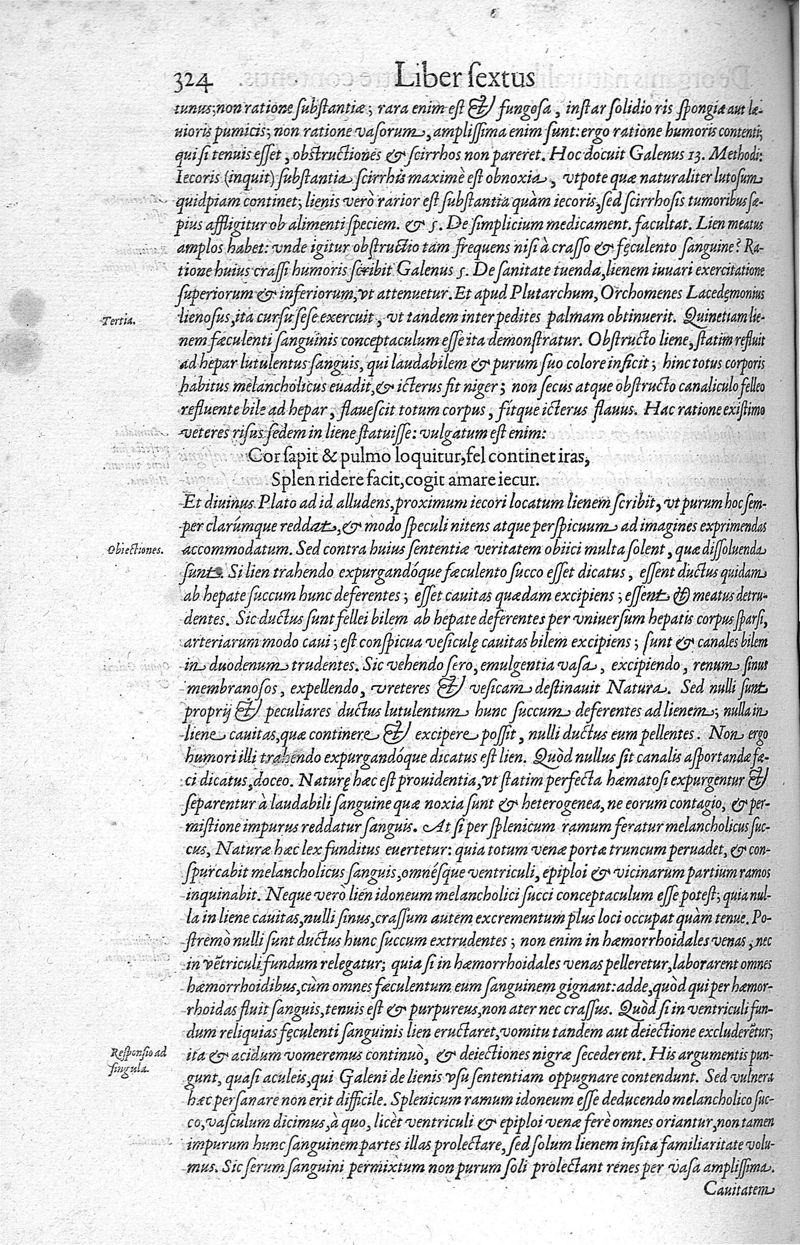 324 Liber ſextus
tunus; non ratione ſubstantiæ; rara enim est & fungoſa, inſtar ſolidioris ſpongiæ aut læ-
uioris pumicis; non ratione vaſorum, ampliſsima enim ſunt: ergo ratione humoris contenti;
qui ſi tenuis eſſet, obstructiones & ſcirrhos non pareret. Hoc docuit Galenus 13. Methodi:
Iecoris (inquit) ſubstantia ſcirrhis maximè est obnoxia, vtpote quæ naturaliter lutoſum
quidpiam continet; lienis verò rarior est ſubstantia quàm iecoris, ſed ſcirrhoſis tumoribus ſæ-
pius affligitur ob alimenti ſpeciem. & 5. De ſimplicium medicament. facultat. Lien meatus
amplos habet: vnde igitur obstructio tam frequens niſi à craſſo & fęculento ſanguine? Ra-
tione huius craſsi humoris ſcribit Galenus 5. De ſanitate tuenda, lienem iuuari exercitatione
ſuperiorum & inferiorum, vt attenuetur. Et apud Plutarchum, Orchomenes Lacedęmonius
lienoſus, ita curſu ſeſe exercuit, vt tandem inter pedites palmam obtinuerit. Quinetiam lie-
Tertia.
nem fæculenti ſanguinis conceptaculum eſſe ita demonſtratur. Obstructo liene, ſtatim refluit
ad hepar lutulentus ſanguis, qui laudabilem & purum ſuo colore inficit; hinc totus corporis
habitus melancholicus euadit, & icterus fit niger; non ſecus atque obstructo canaliculo felleo
refluente bile ad hepar, flaueſcit totum corpus, fitque icterus flauus. Hac ratione exiſtimo
veteres riſus ſedem in liene ſtatuiſſe: vulgatum est enim:
Cor ſapit & pulmo loquitur, fel continet iras,
Splen ridere facit, cogit amare iecur.
Et diuinus Plato ad id alludens, proximum iecori locatum lienem ſcribit, vt purum hoc ſem-
per clarúmque reddat, & modo ſpeculi nitens atque perſpicuum ad imagines exprimendas
Obiectiones.
accommodatum. Sed contra huius ſententiæ veritatem obiici multa ſolent, quæ diſſoluenda
ſunt. Si lien trahendo expurgandóque fæculento ſucco eſſet dicatus, eſſent ductus quidam
ab hepate ſuccum hunc deferentes; eſſet cauitas quædam excipiens; eſſent & meatus detru-
dentes. Sic ductus ſunt fellei bilem ab hepate deferentes per vniuerſum hepatis corpus ſparſi,
arteriarum modo caui; est conſpicua veſiculę cauitas bilem excipiens; ſunt & canales bilem
in duodenum trudentes. Sic vehendo ſero, emulgentia vaſa, excipiendo, renum ſinus
membranoſos, expellendo, vreteres & veſicam deſtinauit Natura. Sed nulli ſunt
proprij & peculiares ductus lutulentum hunc ſuccum deferentes ad lienem; nulla in
liene cauitas, quæ continere & excipere poſsit, nulli ductus eum pellentes. Non ergo
humori illi trahendo expurgandóque dicatus est lien. Quòd nullus ſit canalis aſportandæ fæ-
ci dicatus, doceo. Naturę hæc est prouidentia, vt ſtatim perfecta hæmatoſi expurgentur &
ſeparentur à laudabili ſanguine quæ noxia ſunt & heterogenea, ne eorum contagio, & per-
miſtione impurus reddatur ſanguis. At ſi per ſplenicum ramum feratur melancholicus ſuc-
cus, Naturæ hæc lex funditus euertetur: quia totum venæ portæ truncum peruadet, & con-
ſpurcabit melancholicus ſanguis, omnéſque ventriculi, epiploi & vicinarum partium ramos
inquinabit. Neque verò lien idoneum melancholici ſucci conceptaculum eſſe potest; quia nul-
la in liene cauitas, nulli ſinus, craſſum autem excrementum plus loci occupat quàm tenue. Po-
ſtremò nulli ſunt ductus hunc ſuccum extrudentes; non enim in hæmorrhoidales venas, nec
in vētriculi fundum relegatur; quia ſi in hæmorrhoidales venas pelleretur, laborarent omnes
hæmorrhoidibus, cùm omnes fæculentum eum ſanguinem gignant: adde, quòd qui per hæmor-
rhoidas fluit ſanguis, tenuis est & purpureus, non ater nec craſſus. Quòd ſi in ventriculi fun-
dum reliquias fęculenti ſanguinis lien eructaret, vomitu tandem aut deiectione excluderētur;
Reſponſio ad
ſingula.
ita & acidum vomeremus continuò, & deiectiones nigræ ſecederent. His argumentis pun-
gunt, quaſi aculeis, qui Galeni de lienis vſu ſententiam oppugnare contendunt. Sed vulnera
hæc perſanare non erit difficile. Splenicum ramum idoneum eſſe deducendo melancholico ſuc-
co, vaſculum dicimus, à quo, licèt ventriculi & epiploi venæ ferè omnes oriantur, non tamen
impurum hunc ſanguinem partes illas prolectare, ſed ſolum lienem inſita familiaritate volu-
mus. Sic ſerum ſanguini permixtum non purum ſoli prolectant renes per vaſa ampliſsima.
Cauitatem